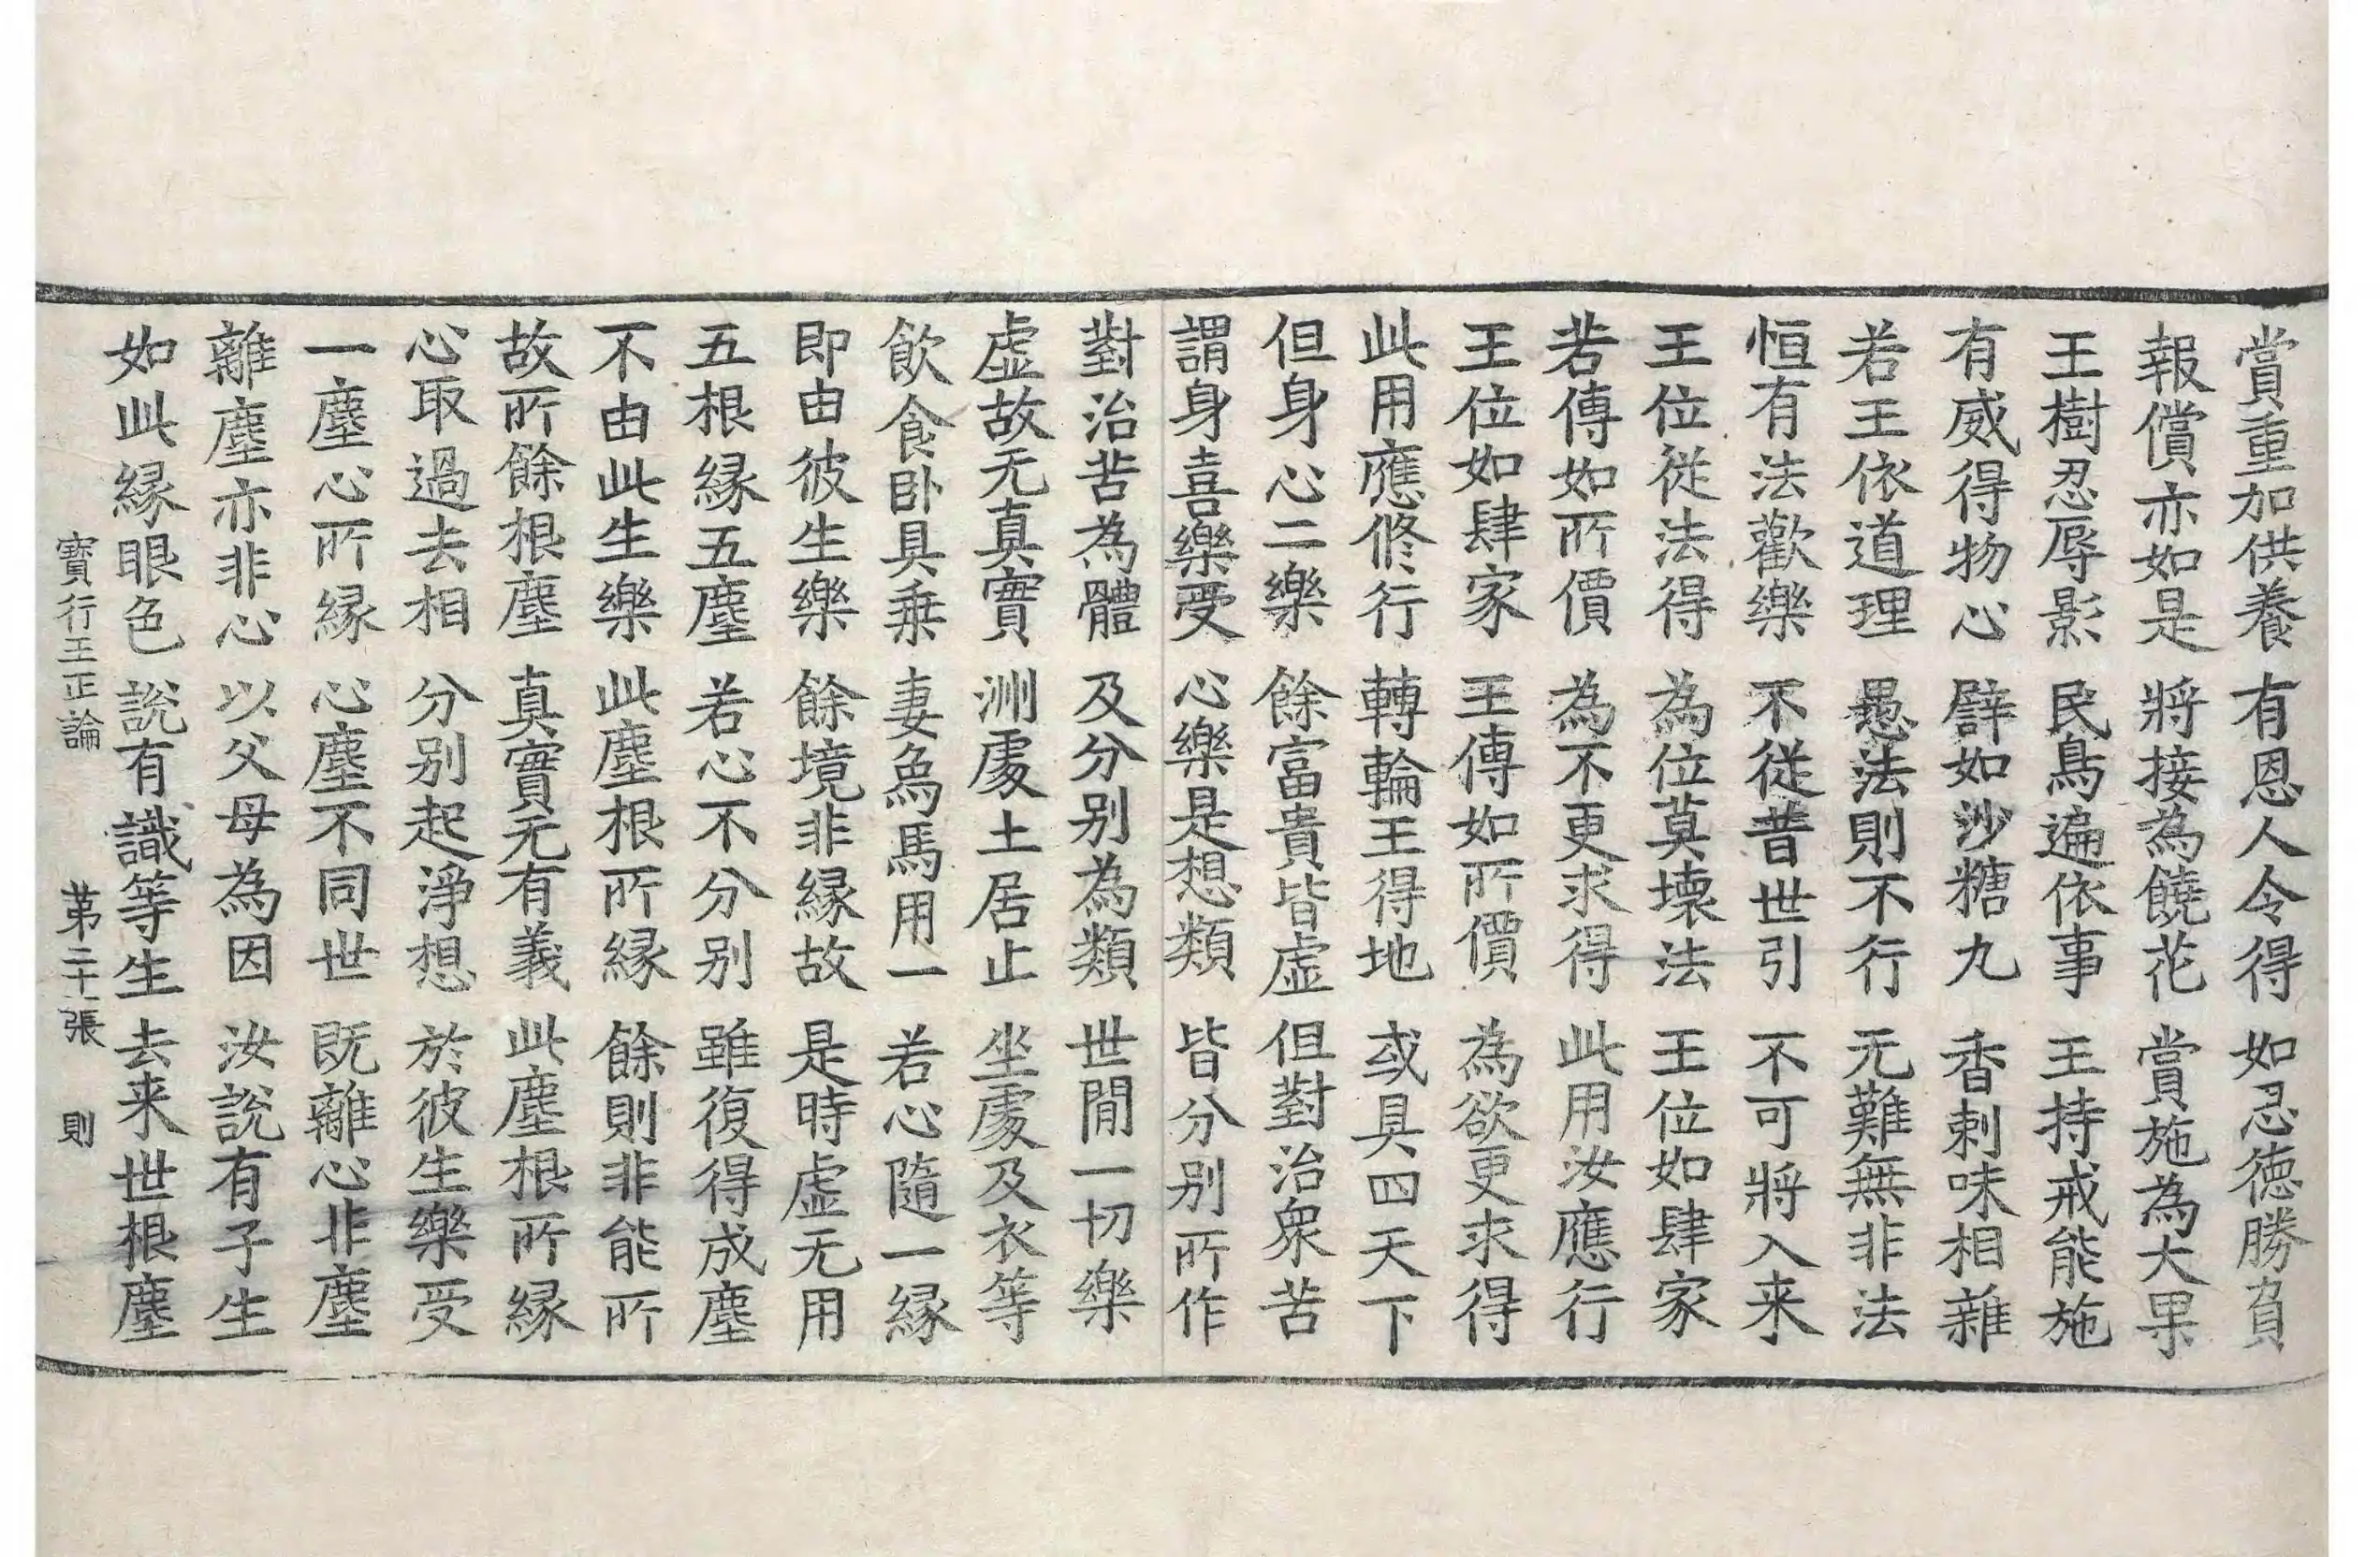 賞重加供養 有恩人令得 如忍徳勝負
報償亦如是 將接為饒花 賞施為大果
王樹忍辱影 民鳥遍依事 王持戒能施
有威得物心 譬如沙糖丸 香剌味相雜
若王依道理 愚法則不行 无難無非法
恒有法歡樂 不從昔世引 不可將入来
王位從法得 為位莫壞法 王位如肆家
若傳如所價 為不更求得 此用汝應行
王位如肆家 王傳如所價 為欲更求得
此用應修行 轉輪王得地 或具四天下
但身心二樂 餘富貴皆虛 但對治衆苦
謂身喜樂受 心樂是想類 皆分別所作
對治苦為體 及分別為類 世間一切樂
虛故无真實 洲處土居止 坐處及衣等
飲食卧具乗 妻象馬用一 若心隨一緣
即由彼生樂 餘境非緣故 是時虛无用
五根緣五塵 若心不分別 雖復得成塵
不由此生樂 此塵根所緣 餘則非能所
故所餘根塵 真實无有義 此塵根所緣
心取過去相 分別起淨想 於彼生樂受
一塵心所緣 心塵不同世 既離心非塵
離塵亦非心 以父母為因 汝説有子生
如此緣眼色 説有識等生 去来世根塵
寳行王正論 苐二十張 則